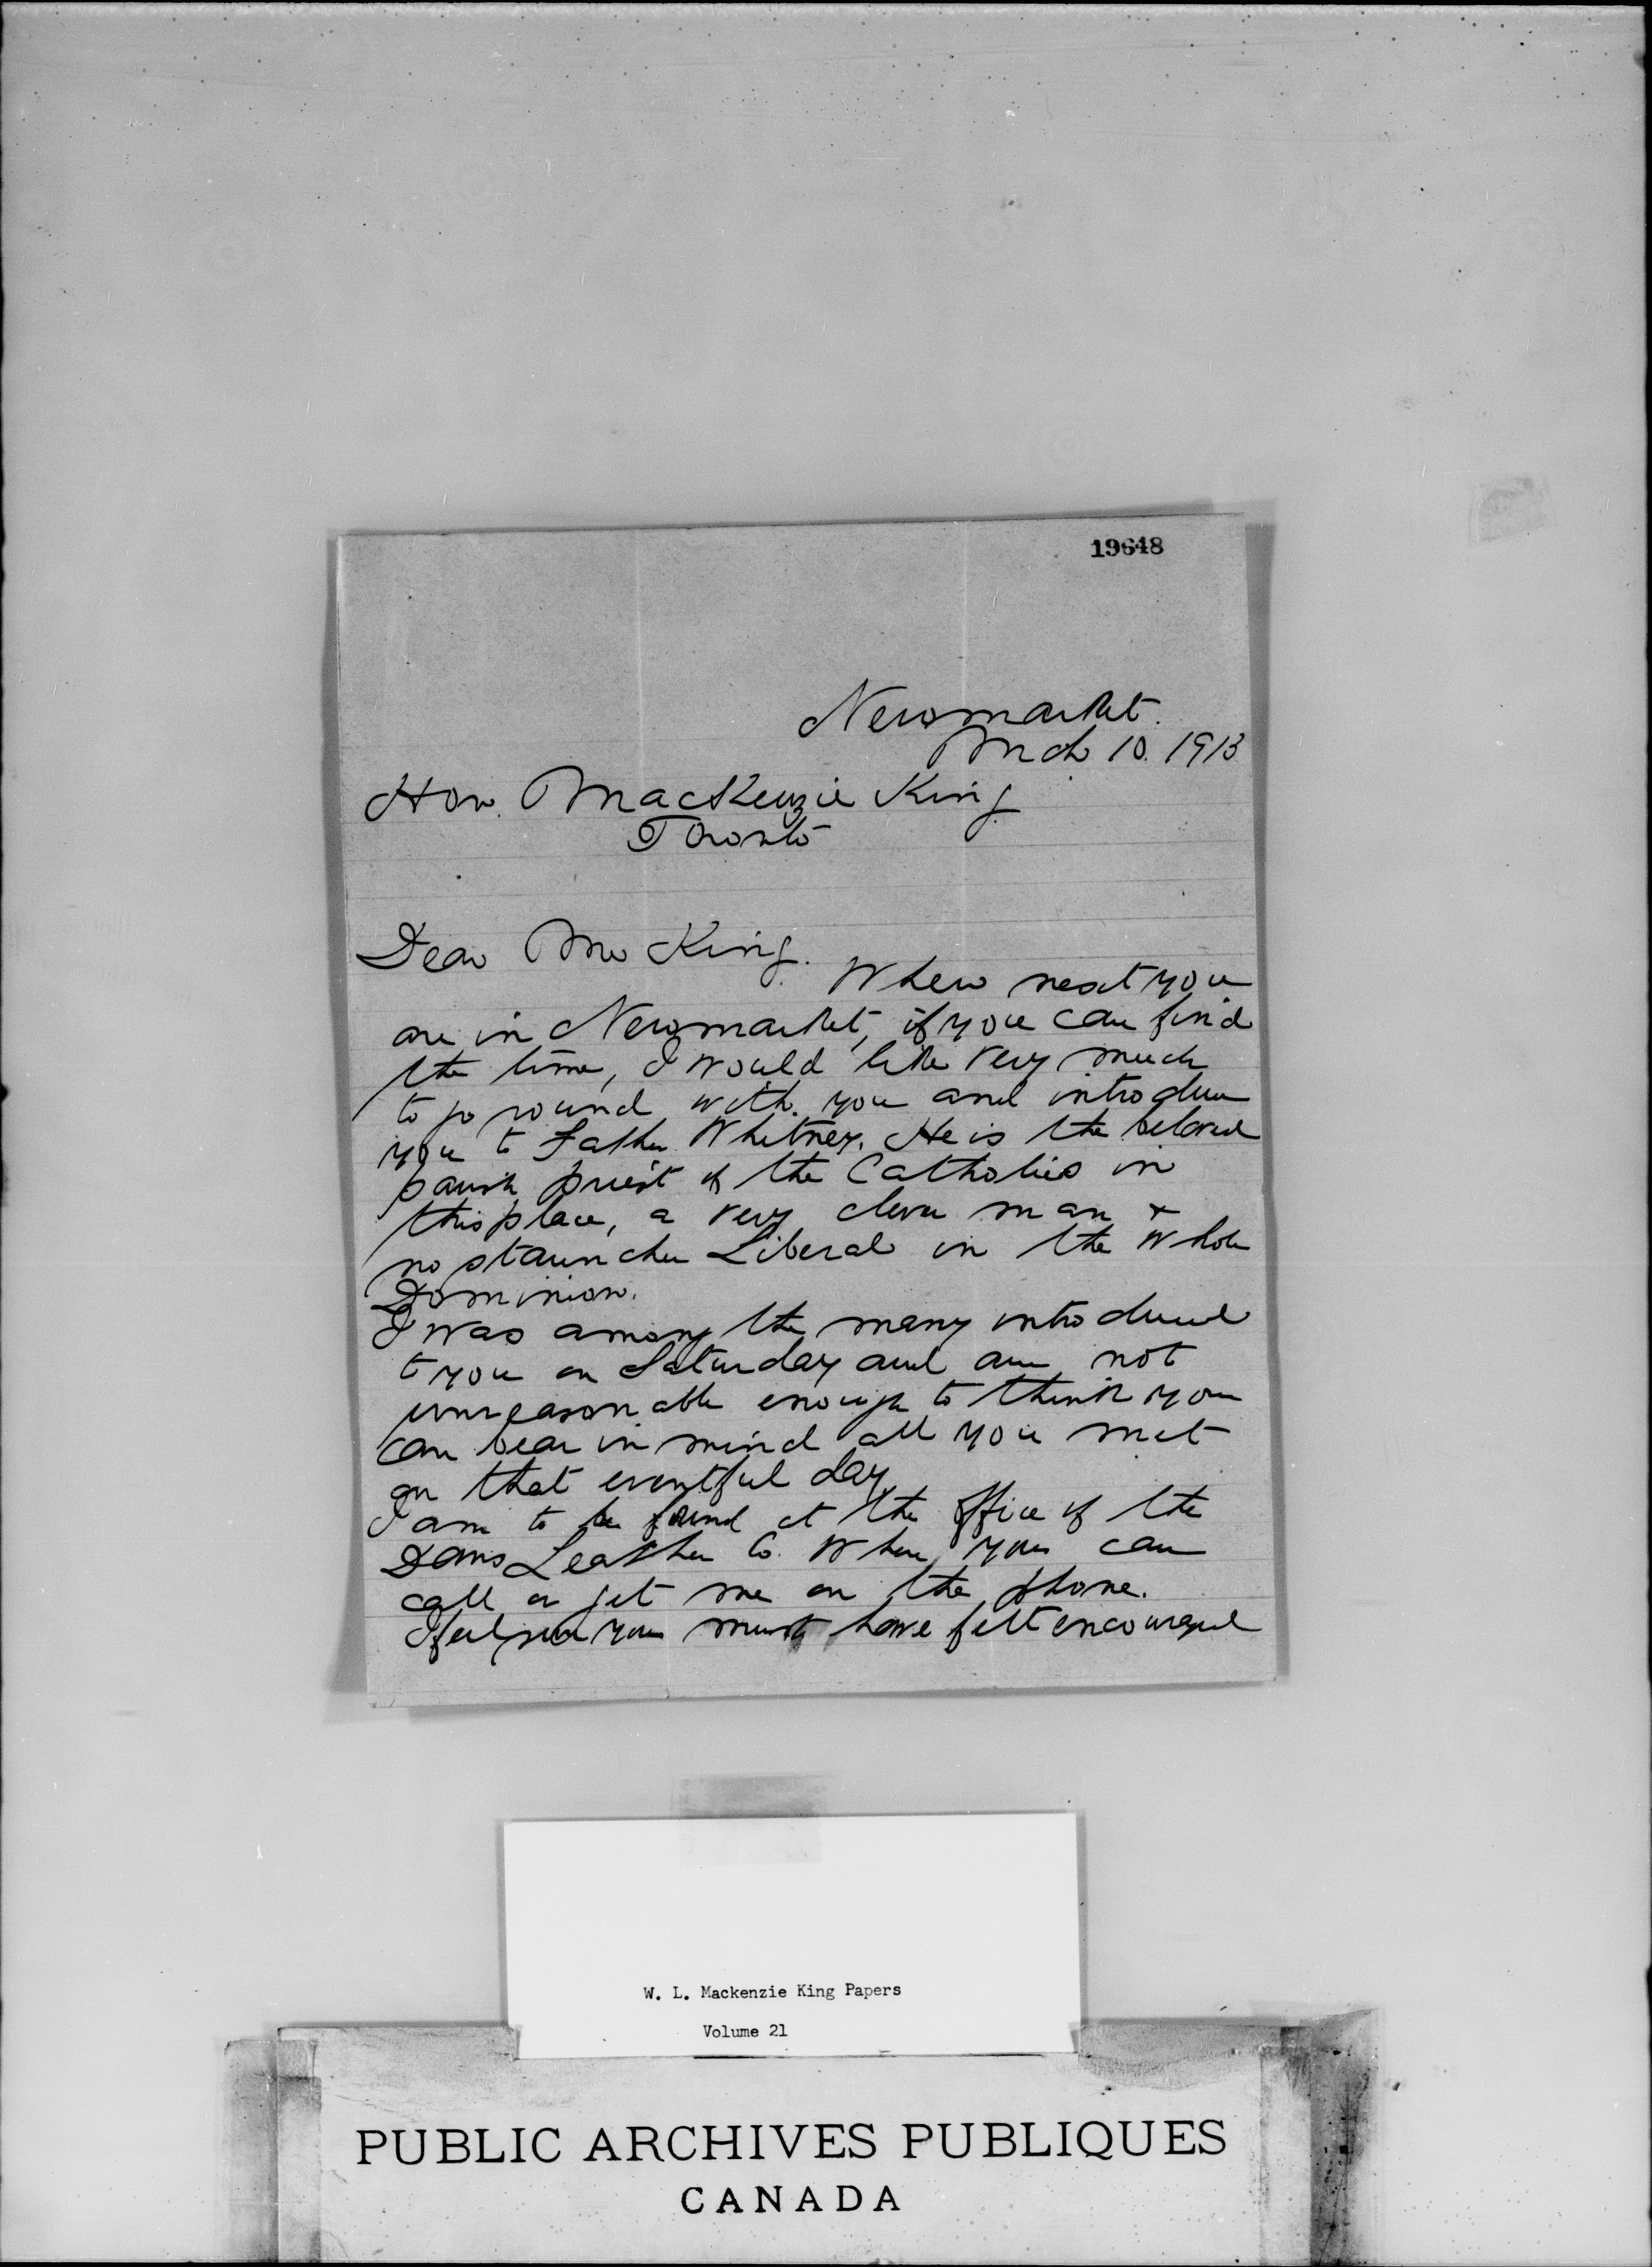 19648
Newmarket.
Mch 10. 1913
Hon. MacKenzie King
Toronto
Dear Mr King.
When next you
are in Newmarket, if you can find
the time, I would like very much
to go round with you and introduce
you to Father Whitney. He is the beloved
parish priest of the Catholics in
this place, a very clever man &
no stauncher Liberal in the whole
Dominion.
I was among the many introduced
to you on Saturday and am not
unreasonable enough to think you
can bear in mind all you met
on that eventful day.
I am to be found at the office of the
Davis Leather Co. where you can
call or get me on the phone.
I feel sure you must have felt encouraged
W. L. Mackenzie King Papers
Volume 21
PUBLIC ARCHIVES PUBLIQUES
CANADA